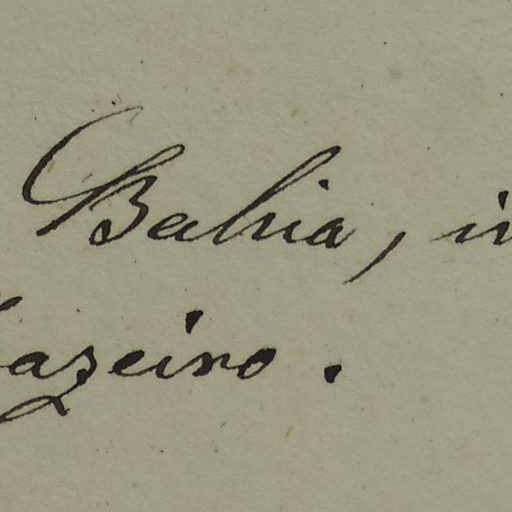 Bahia, in
azeiro.